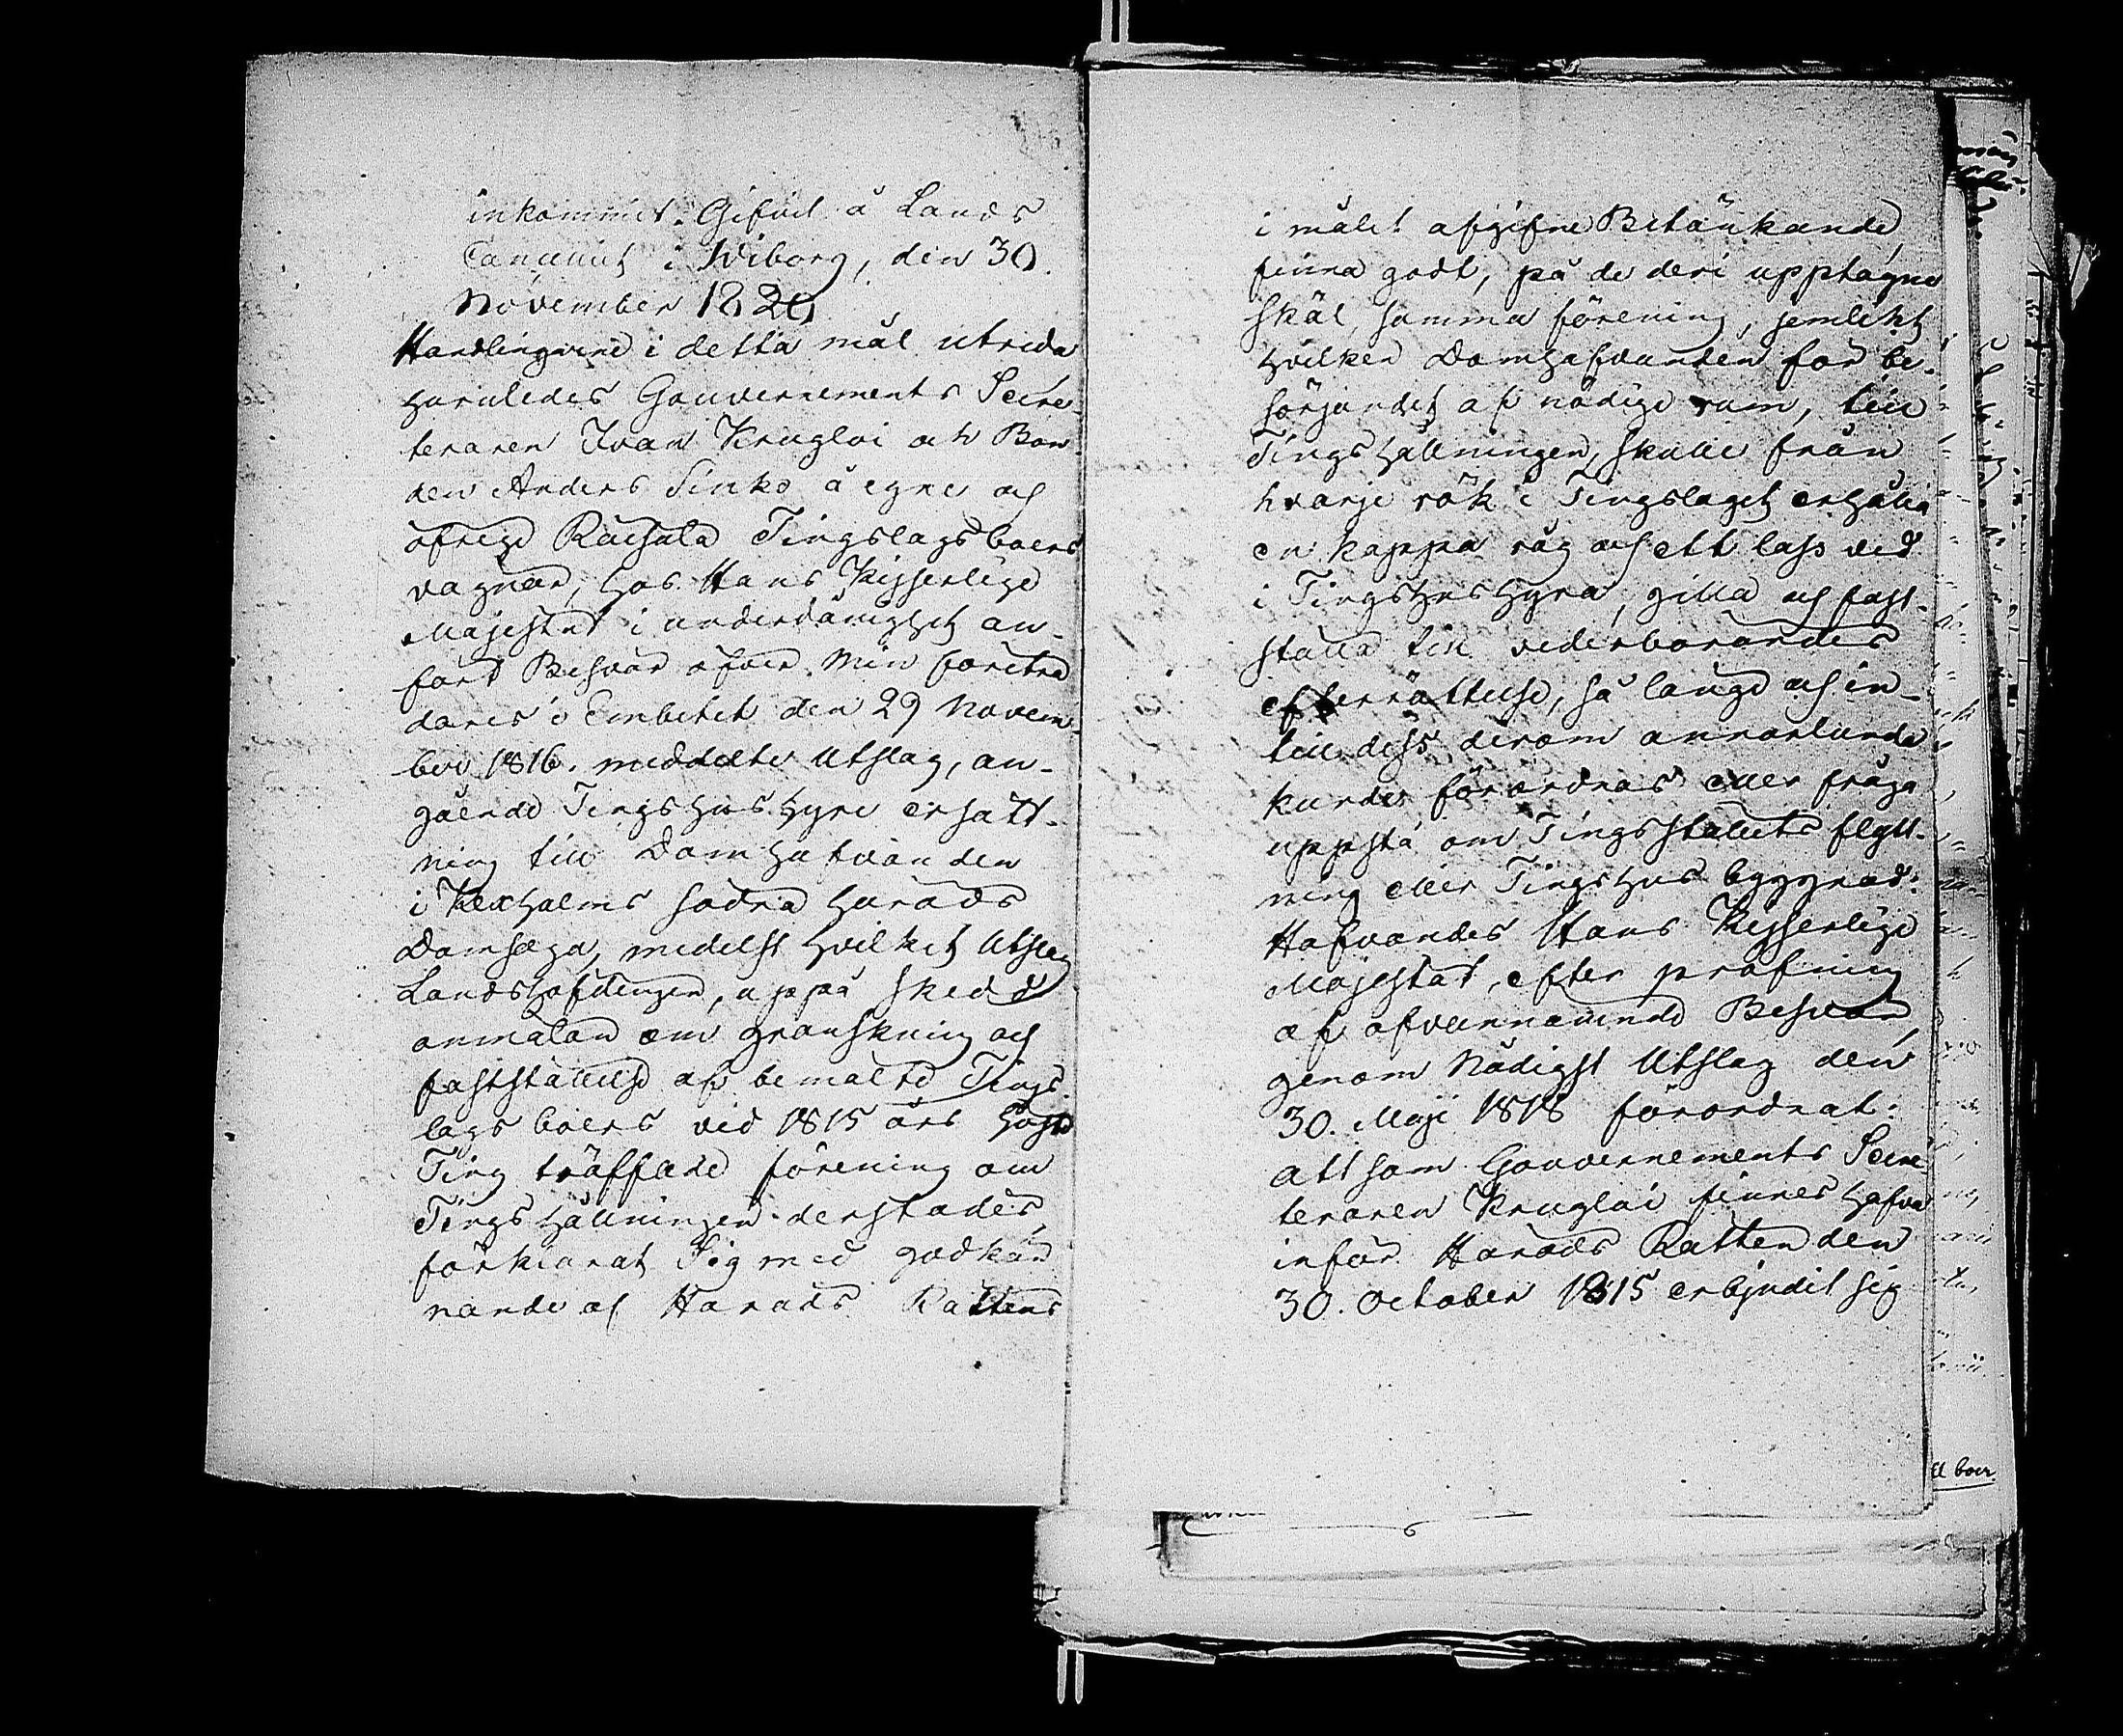 inkommit. Gifvit å Lands
Cancelliet i Wiborg, den 30
November 1820
Handlingarne i detta mål utreda
huruledes Gouvernements Secre-
teraren Ivan Krugloi och Bon-
den Anders Sinko å egne och
öfrige Raisala Tingslagsboers
vagnar, hos Hans Kejserlige
Majestät i underdånighet an-
fört Besvär öfver Min företrä-
dares i Embetet den 29 Novem-
ber 1816. meddelte Utslag, an-
gående Tingshushyre ersätt-
ning till Domhafvanden
i Kexholms södra Härads
Domsaga, medelst hvilket Utslag
Landshöfdingen, uppå skedd
anmälan om granskning och
fastställelse af bemälte Tings-
lagsboers vid 1815 års Höste
Ting träffade förening om
Tingshållningen derstädes,
förklarat Sig med godkän-
nande af Härads Rättens
i målet afgifne Betänkande,
finna godt, på de deri upptagne
skäl, samma förening, jemlikt
hvilken Domhafvanden för be-
sörjandet af nödige rum, till
Tingshållningen, skulle från
hvarje rök i Tingslaget erhålla
en kappa råg och ett lass ved
i Tingshushyra, gilla och fast-
ställa till vederbörandes
efterrättelse, så länge och in-
till dess derom annorlunda
kunde förordnas eller fråga
uppstå om Tingsställets flytt-
ning eller Tingshus byggnad:
Hafvandes Hans Kejserlige
Majestät, efter pröfning
af ofvannämnde Besvär,
genom Nådigst Utslag den
30. Maji 1818 förordnat:
att som Gouvernements Secre-
teraren Krugloi finnes hafva
inför Härads Rätten den
30. October 1815 erbjudit sig
ll boer.